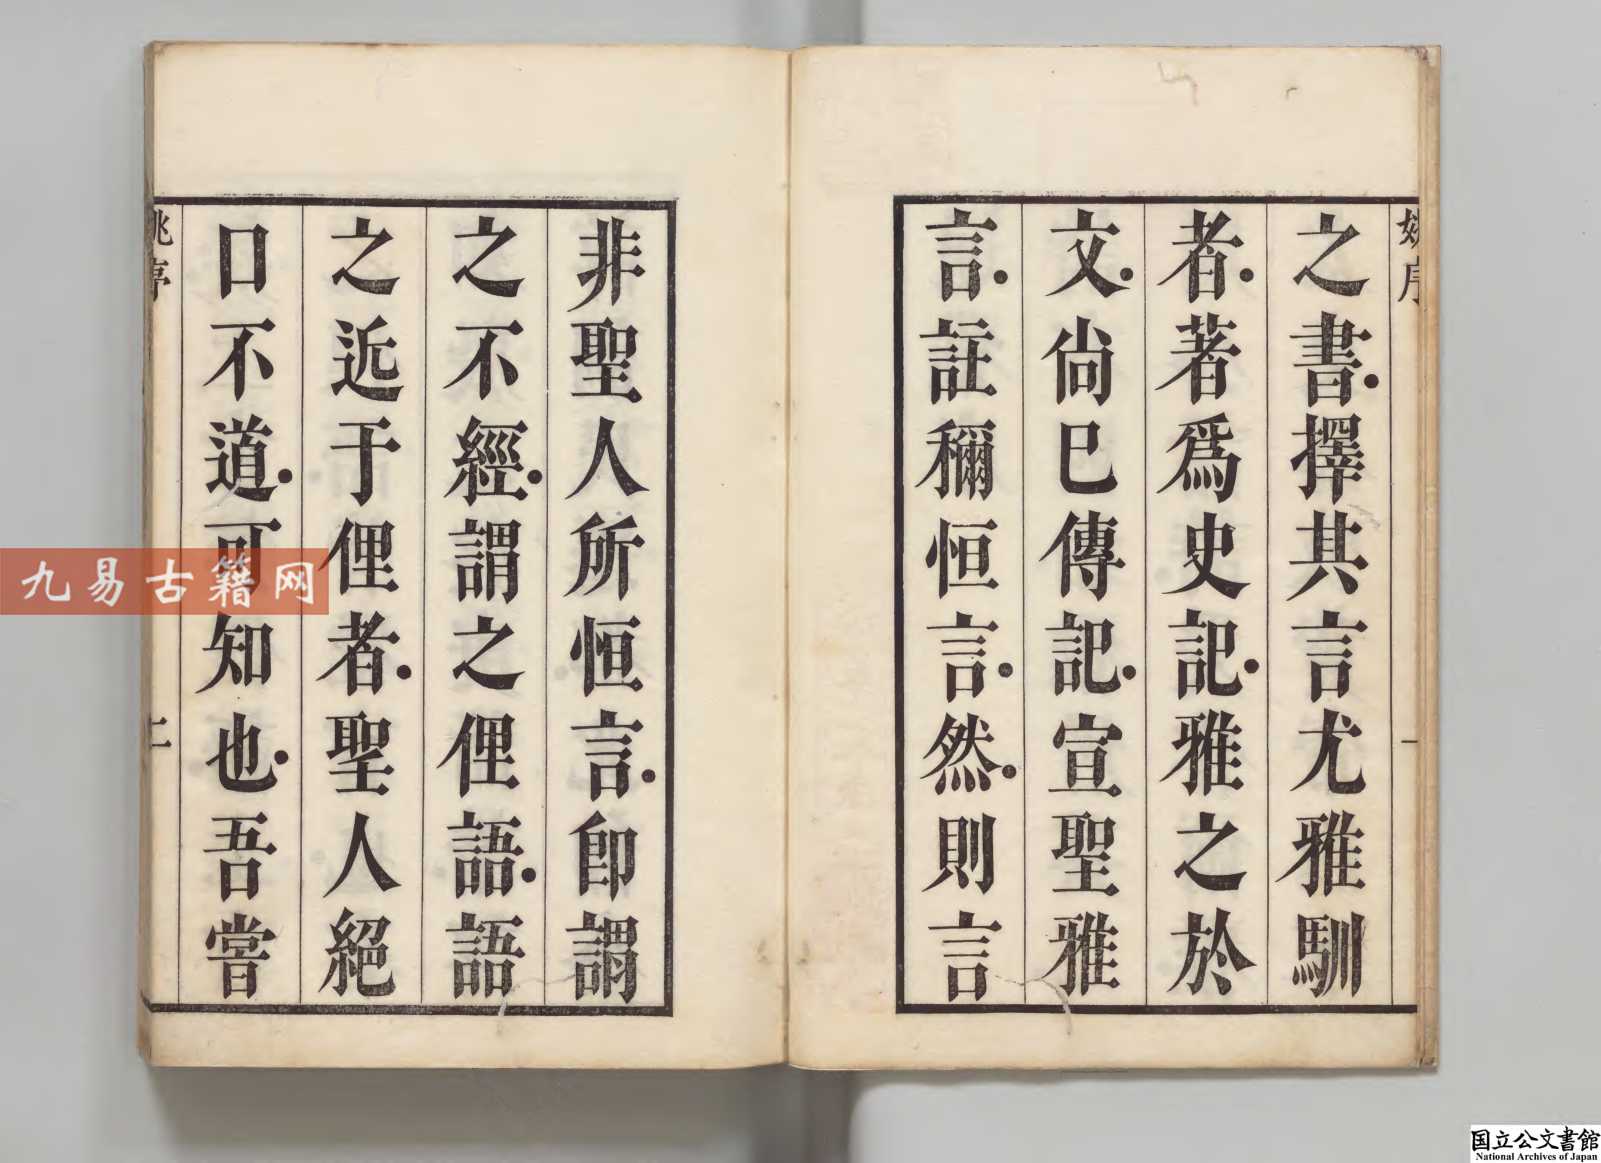 之書擇其言尤雅馴
者著爲史記雅之於
文尚巳傳記宣聖雅
言註穪恒言然則言
非聖人所恒言卽謂
之不經謂之俚語語
之近于俚者聖人絕
口不道可知也吾嘗
姚序
二
九易古籍网
国立公文書館
National Archives of Japan